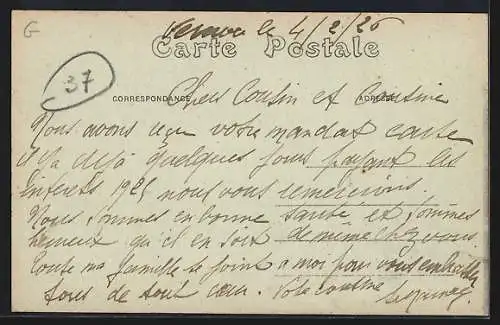 G
Vernou le 4/2/26
Carte Postale
37
CORRESPONDANCE ADRESSE
Chers Cousin et Cousine
Nous avons reçu votre mandat carte
il y a déjà quelques jours payant les
interets 1925 nous vous remercions.
Nous sommes en bonne santé et sommes
heureux qu'il en soit de même chez vous
Toute ma famille se joint a moi pour vous embrasser
tous de tout cœur. Votre cousine